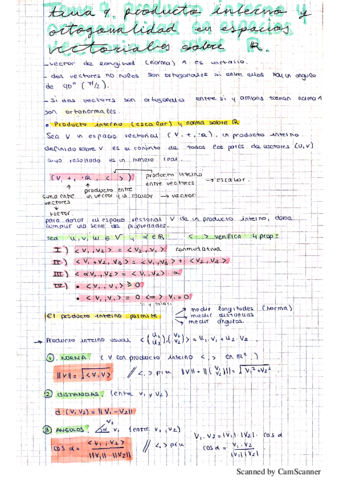 tema 4. producto interno y
ortogonalidad en espacios
vectoriales sobre R.
- vector de longitud (norma) 1 es unitario.
- dos vectores no nulos son ortogonales si entre ellos hay un angulo
de 90° (π/2).
- Si dos vectores son ortogonales entre si y ambos tienen norma 1
son ortonormales.
• Producto interno (escalar) y norma sobre R
Sea V un espacio vectorial (V, +, ·R), un producto interno
definido sobre V es el conjunto de todos los pares de vectores (u,v)
cuyo resultado es un número real.
(V, +, ·R, < >) producto interno
entre vectores → escalar.
suma entre vectores
↓
vector
producto entre
un vector y un escalar → vector
para dotar al espacio vectorial V de un producto interno, debe
cumplir una serie de propiedades.
sea u, v, w ∈ V y α ∈ R < > verifica 4 prop:
I) <v1, v2> = <v2, v1> conmutativa
II) <v1 + v2, v3> = <v1, v3> + <v2, v3>
III) <αv1, v2> = <v1, v2> α
IV) • <v1, v1> ≥ 0
• <v1, v1> = 0 <=> v1 = 0
El producto interno permite
medir longitudes (norma)
medir distancias
medir ángulos
→ Producto interno usual <(u1 u2), (v1 v2)> = u1·v1 + u2·v2
① NORMA: (V con producto interno <,> en R²)
||v|| = √<v,v> // <,> p.i.u ||v|| = ||(v1 v2)|| = √v1² + v2²
② DISTANCIAS: (entre v1 y v2)
d(v1, v2) = ||v1 - v2||
③ ÁNGULOS: (entre v1, v2) v1·v2 = |v1|·|v2|·cos α
cos α = <v1, v2> / ||v1||·||v2|| // <,> p.i.u cos α = v1·v2 / |v1||v2|
Scanned by CamScanner